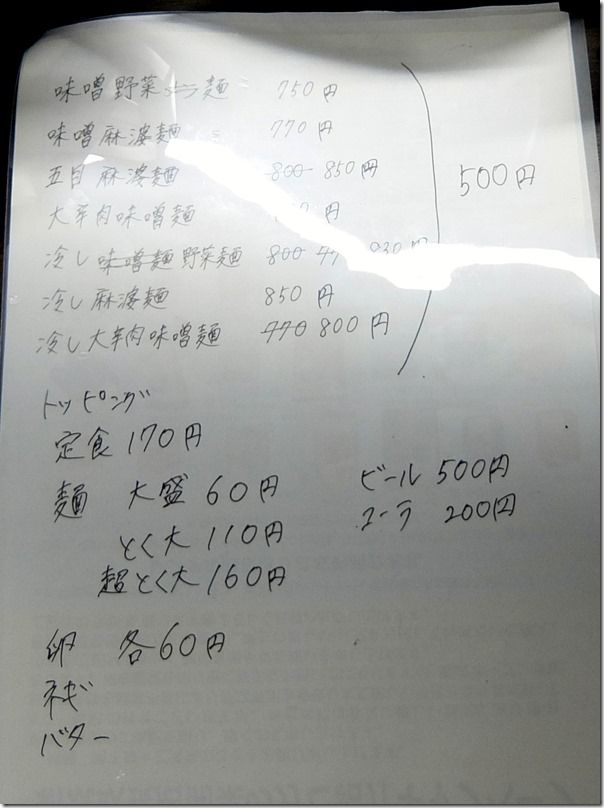 味噌野菜麺 750円
味噌麻婆麺 770円
五目麻婆麺 800 850円
大辛肉味噌麺 円
冷し味噌麺野菜麺 800
冷し麻婆麺 850円
冷し大辛肉味噌麺 770 800円
500円
トッピング
定食 170円
麺 大盛 60円
とく大 110円
超とく大 160円
ビール 500円
コーラ 200円
卵 各60円
ネギ
バター